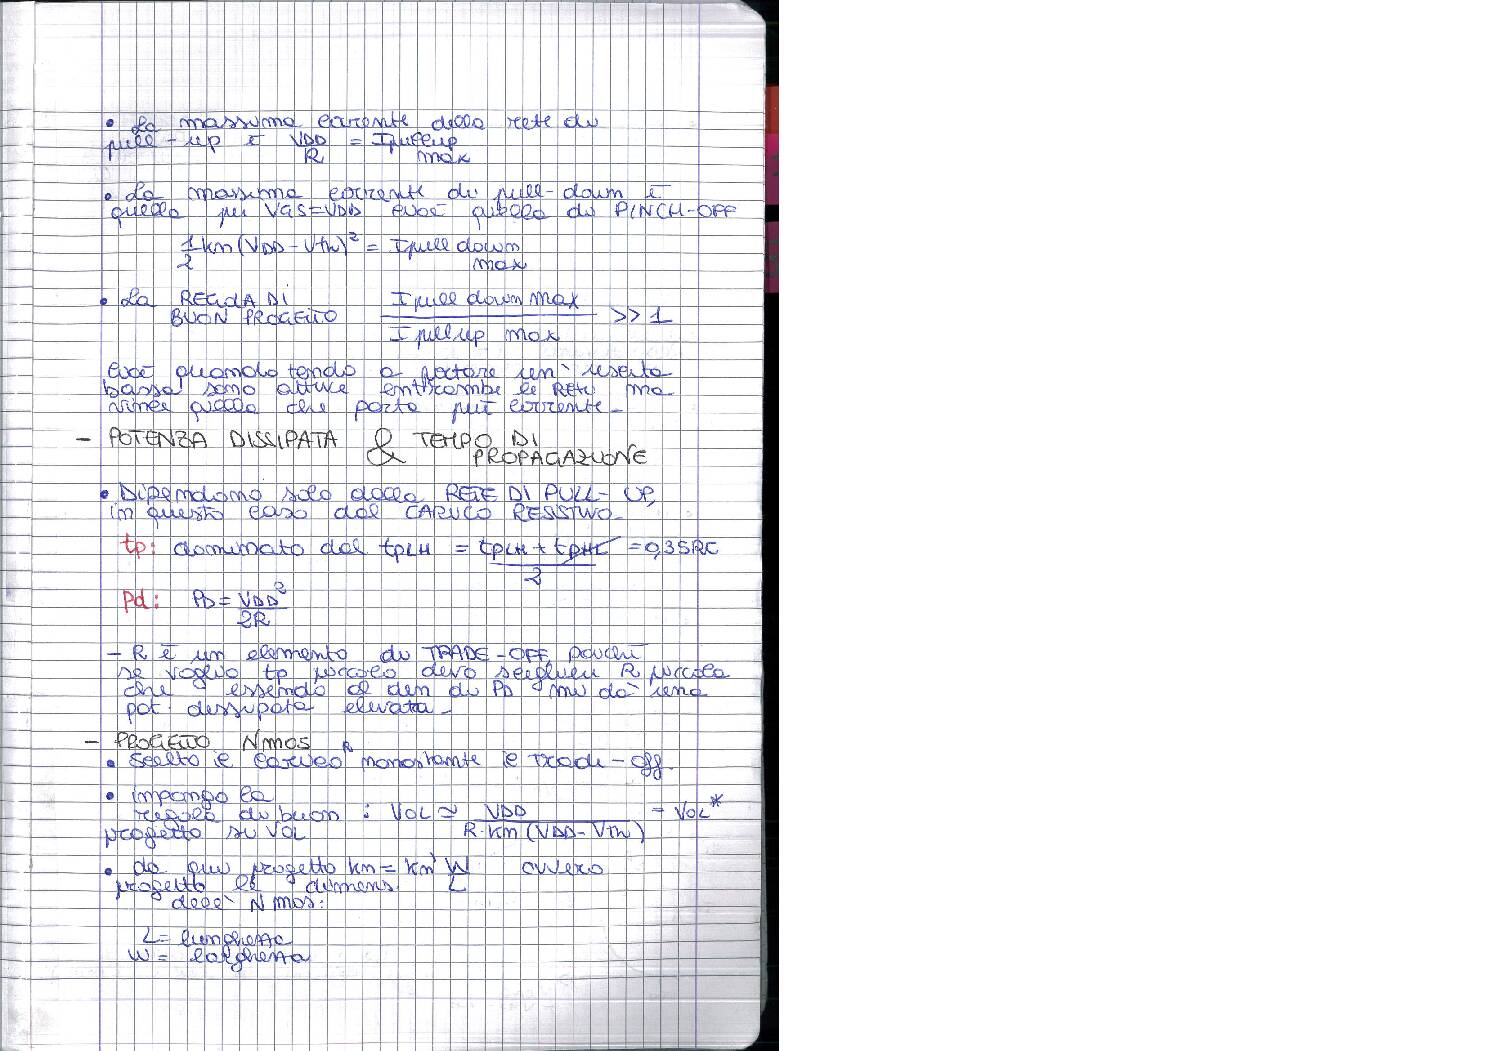 • La massima corrente della rete di
pull-up è VDD/R = Ipullup max
• La massima corrente di pull-down è
quella per VGS=VDD cioè quella di PINCH-OFF
1/2 kn (VDD - Vtn)² = Ipull down max
• La REGOLA DI BUON PROGETTO Ipull down max / Ipull up max >> 1
Cioè quando tendo a portare un' uscita
bassa sono attive entrambe le RETI ma
vince quella che porta più corrente.
- POTENZA DISSIPATA & TEMPO DI PROPAGAZIONE
• Dipendono solo dalla RETE DI PULL-UP,
in questo caso dal CARICO RESISTIVO.
tp: dominato dal tpLH = tpLH + tpHL / 2 = 0,35RC
Pd: PD = VDD² / 2R
- R è un elemento di TRADE-OFF poiché
se voglio tp piccolo devo scegliere R piccola
che essendo al den di PD mi dà una
pot. dissipata elevata.
- PROGETTO Nmos
• Scelto il carico R nonostante il trade-off.
• impongo la
regola di buon : VOL ≃ VDD / R·kn (VDD - Vtn) = VOL*
progetto su VOL
• da qui progetto kn = kn' W/L ovvero
progetto le dimens.
dell' Nmos:
L = lunghezza
W = larghezza